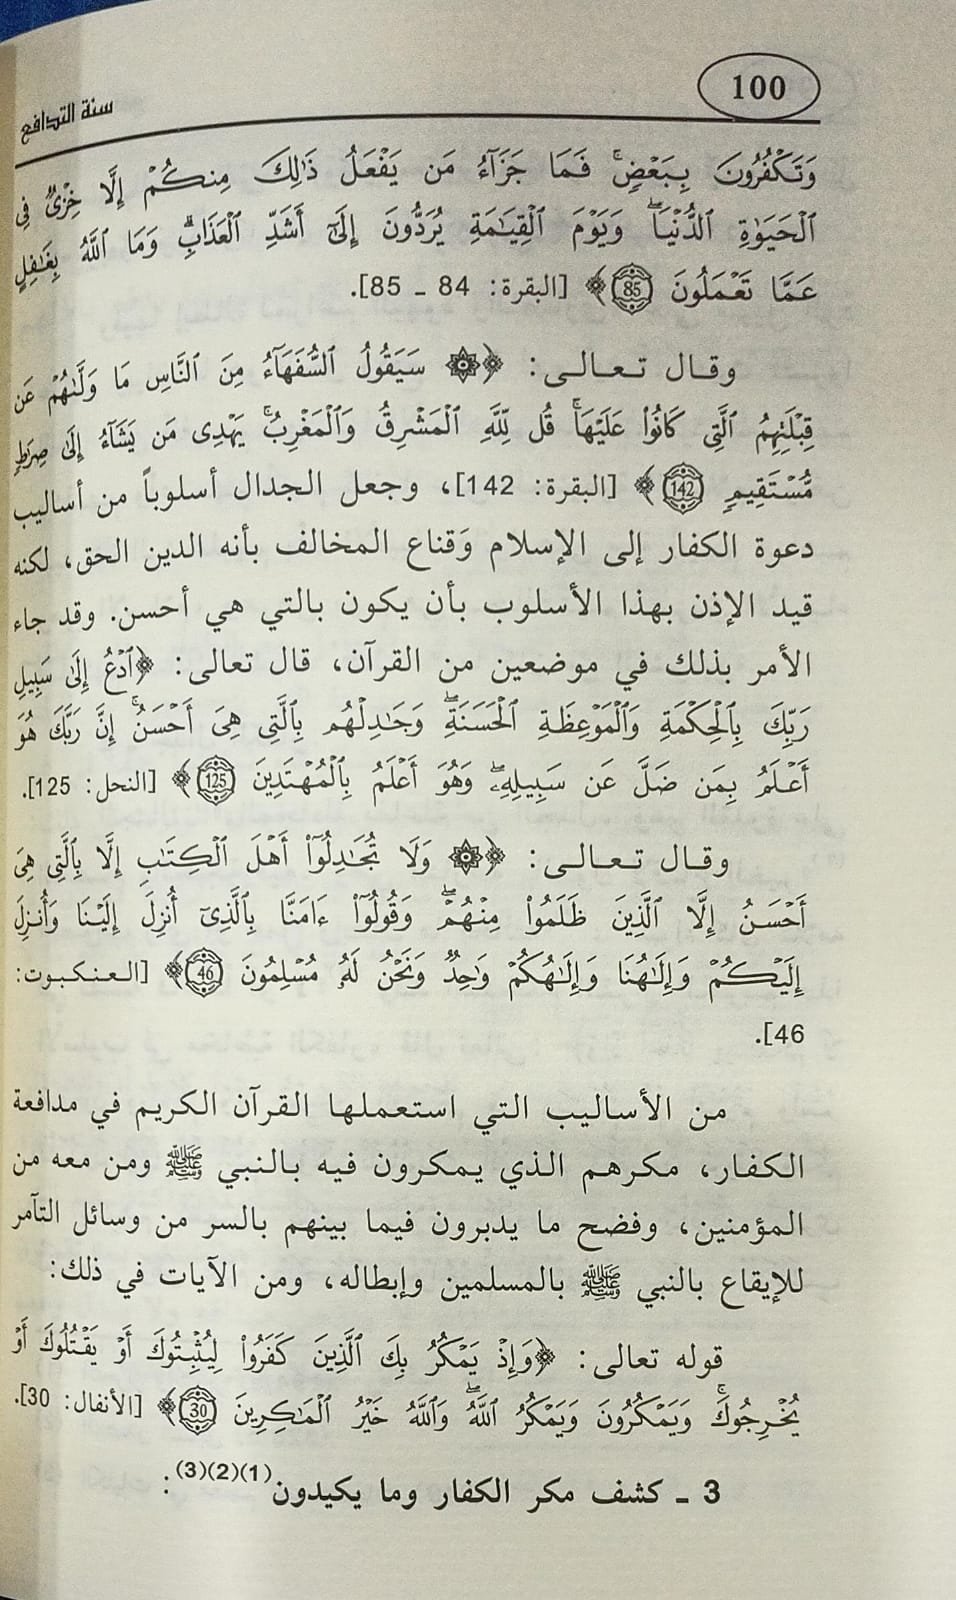 100
سنة التدافع
وَتَكْفُرُونَ بِبَعْضٍ ۚ فَمَا جَزَآءُ مَن يَفْعَلُ ذَٰلِكَ مِنكُمْ إِلَّا خِزْىٌ فِى
ٱلْحَيَوٰةِ ٱلدُّنْيَا ۖ وَيَوْمَ ٱلْقِيَـٰمَةِ يُرَدُّونَ إِلَىٰٓ أَشَدِّ ٱلْعَذَابِ ۗ وَمَا ٱللَّهُ بِغَـٰفِلٍ
عَمَّا تَعْمَلُونَ (85)﴾ [البقرة: 84 - 85].
وقال تعالى: ﴿۞ سَيَقُولُ ٱلسُّفَهَآءُ مِنَ ٱلنَّاسِ مَا وَلَّىٰهُمْ عَن
قِبْلَتِهِمُ ٱلَّتِى كَانُوا۟ عَلَيْهَا ۚ قُل لِّلَّهِ ٱلْمَشْرِقُ وَٱلْمَغْرِبُ ۚ يَهْدِى مَن يَشَآءُ إِلَىٰ صِرَٰطٍ
مُّسْتَقِيمٍ (142)﴾ [البقرة: 142]، وجعل الجدال أسلوباً من أساليب
دعوة الكفار إلى الإسلام وَقناع المخالف بأنه الدين الحق، لكنه
قيد الإذن بهذا الأسلوب بأن يكون بالتي هي أحسن. وقد جاء
الأمر بذلك في موضعين من القرآن، قال تعالى: ﴿ٱدْعُ إِلَىٰ سَبِيلِ
رَبِّكَ بِٱلْحِكْمَةِ وَٱلْمَوْعِظَةِ ٱلْحَسَنَةِ ۖ وَجَـٰدِلْهُم بِٱلَّتِى هِىَ أَحْسَنُ ۚ إِنَّ رَبَّكَ هُوَ
أَعْلَمُ بِمَن ضَلَّ عَن سَبِيلِهِۦ ۖ وَهُوَ أَعْلَمُ بِٱلْمُهْتَدِينَ (125)﴾ [النحل: 125].
وقال تعالى: ﴿۞ وَلَا تُجَـٰدِلُوٓا۟ أَهْلَ ٱلْكِتَـٰبِ إِلَّا بِٱلَّتِى هِىَ
أَحْسَنُ إِلَّا ٱلَّذِينَ ظَلَمُوا۟ مِنْهُمْ ۖ وَقُولُوٓا۟ ءَامَنَّا بِٱلَّذِىٓ أُنزِلَ إِلَيْنَا وَأُنزِلَ
إِلَيْكُمْ وَإِلَـٰهُنَا وَإِلَـٰهُكُمْ وَٰحِدٌ وَنَحْنُ لَهُۥ مُسْلِمُونَ (46)﴾ [العنكبوت:
46].
من الأساليب التي استعملها القرآن الكريم في مدافعة
الكفار، مكرهم الذي يمكرون فيه بالنبي ﷺ ومن معه من
المؤمنين، وفضح ما يدبرون فيما بينهم بالسر من وسائل التآمر
للإيقاع بالنبي ﷺ بالمسلمين وإبطاله، ومن الآيات في ذلك:
قوله تعالى: ﴿وَإِذْ يَمْكُرُ بِكَ ٱلَّذِينَ كَفَرُوا۟ لِيُثْبِتُوكَ أَوْ يَقْتُلُوكَ أَوْ
يُخْرِجُوكَ ۚ وَيَمْكُرُونَ وَيَمْكُرُ ٱللَّهُ ۖ وَٱللَّهُ خَيْرُ ٱلْمَـٰكِرِينَ (30)﴾ [الأنفال: 30].
3 - كشف مكر الكفار وما يكيدون(1)(2)(3):